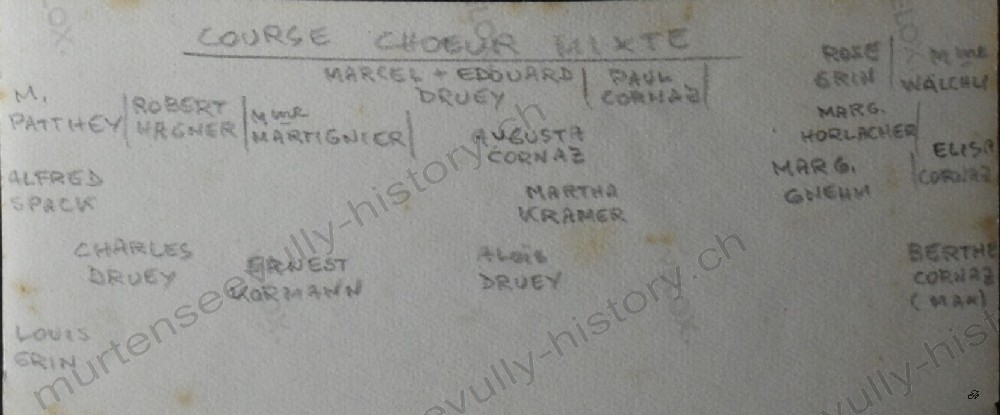 COURSE CHOEUR MIXTE
MARCEL + EDOUARD
DRUEY
PAUL
CORNAZ
ROSE
GRIN
Mme
WÄLCHLI
M.
PATTHEY
ROBERT
WAGNER
Mme
MARTIGNIER
AUGUSTA
CORNAZ
MARG.
HORLACHER
ELISA
CORNAZ
ALFRED
SPACK
MARTHA
KRAMER
MARG.
GNEHM
CHARLES
DRUEY
ERNEST
KORMANN
ALOÏS
DRUEY
BERTHE
CORNAZ
(MAX)
LOUIS
GRIN
murtensee-vully-history.ch
evully-history.ch
vully-hist